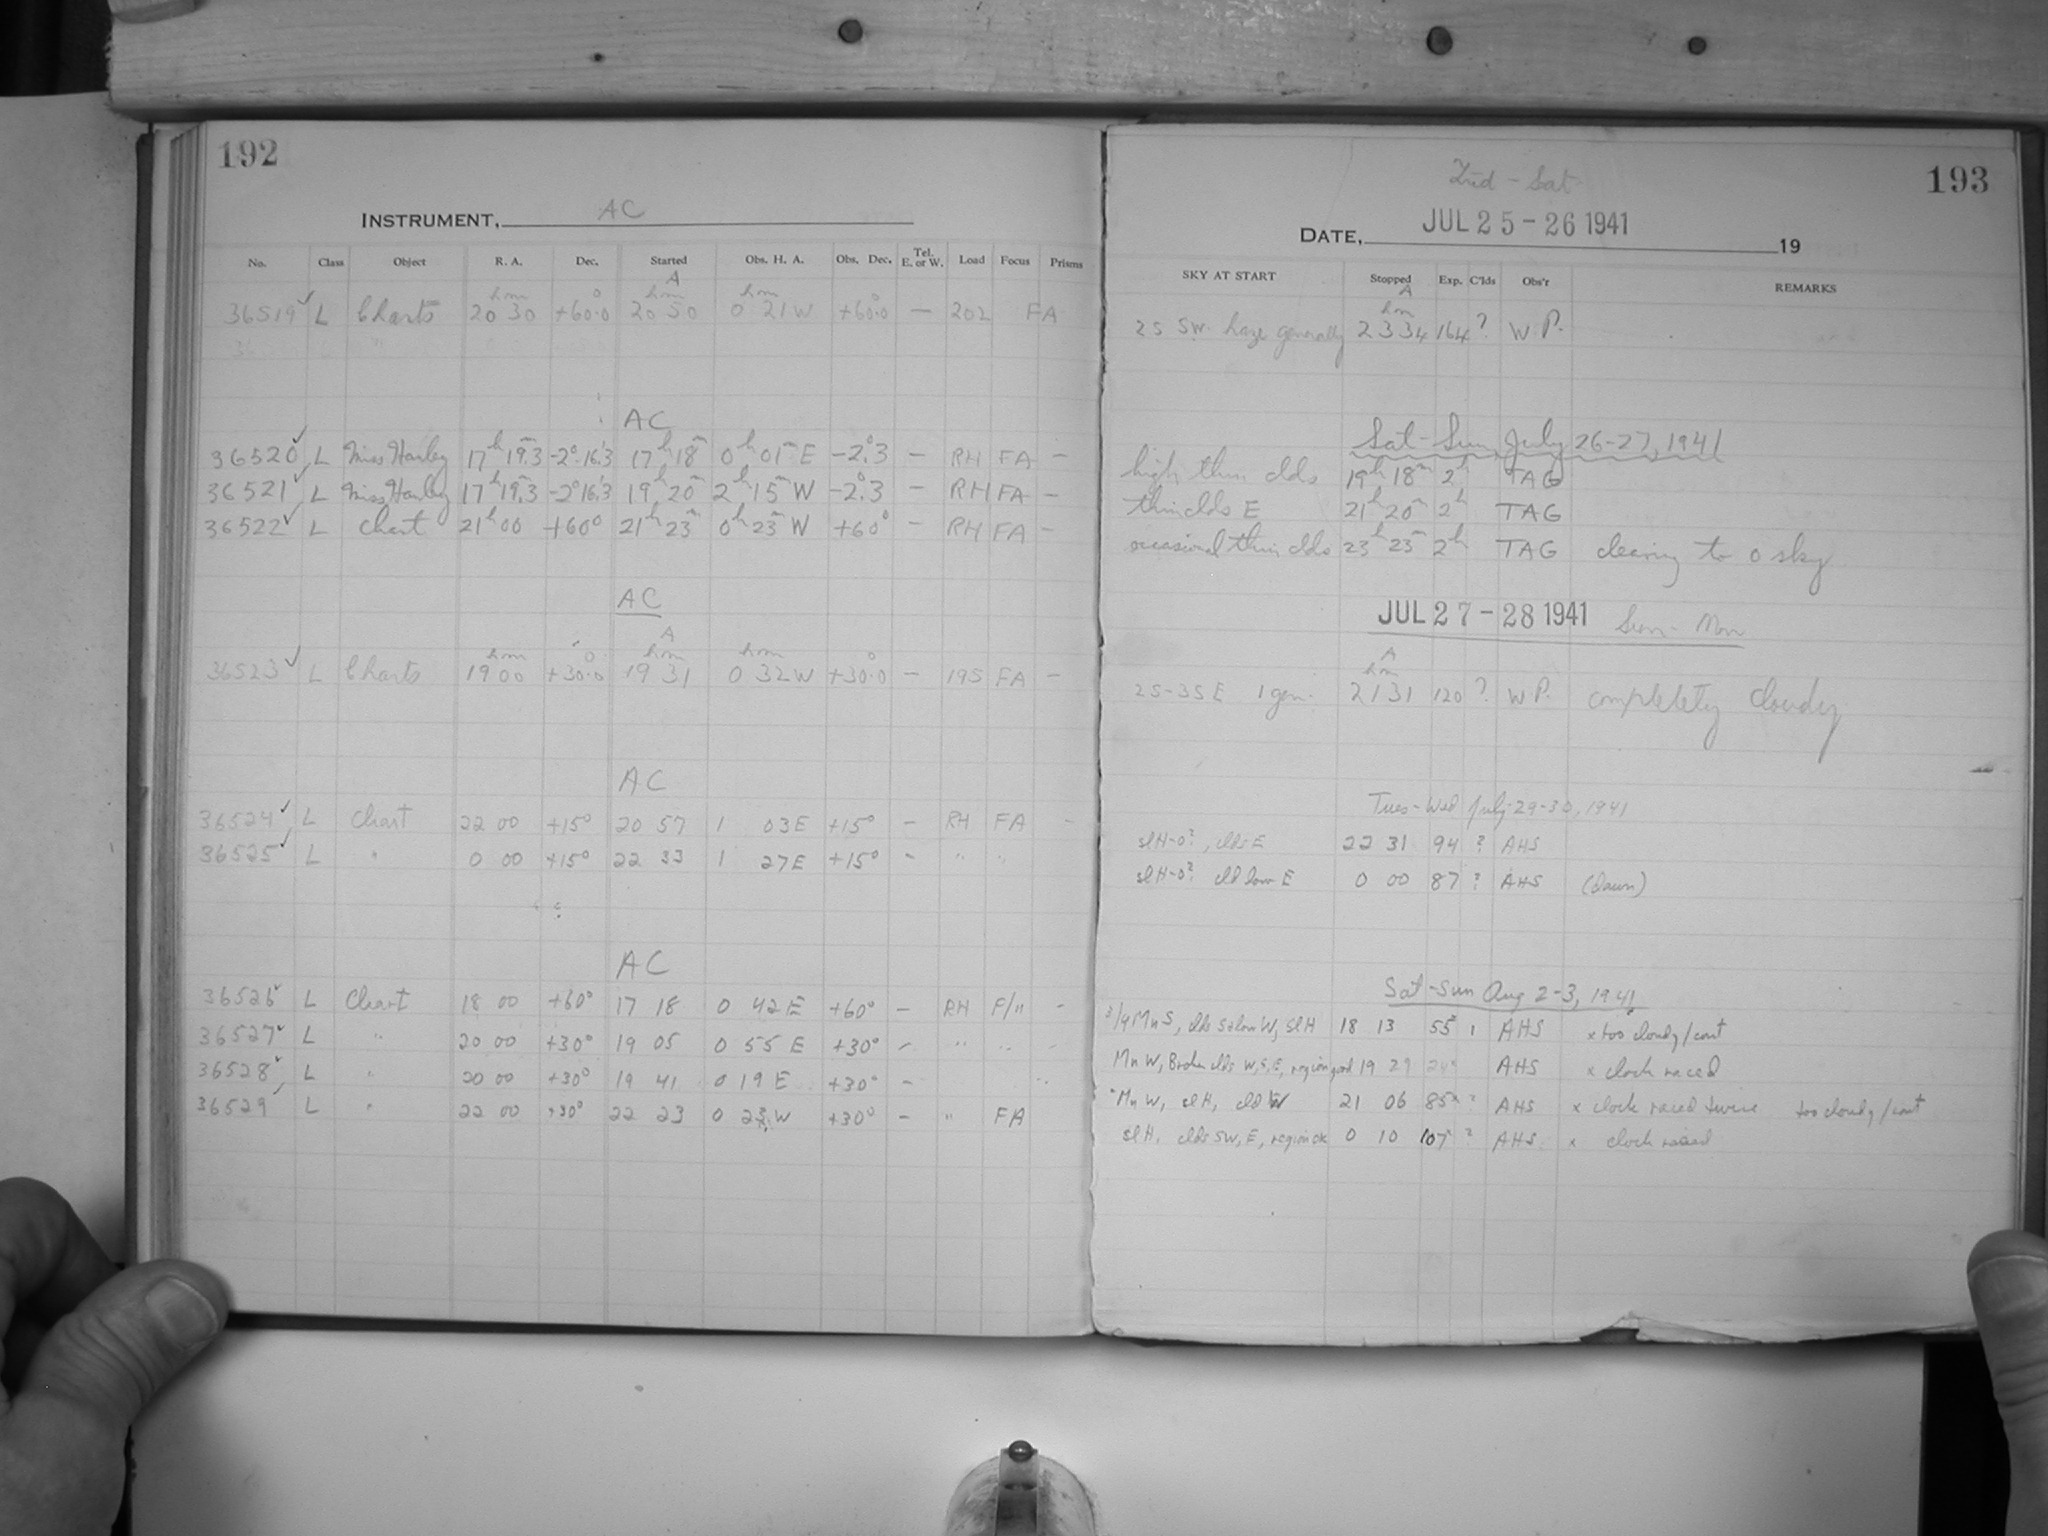 192
INSTRUMENT, AC
No. Class Object R. A. Dec. Started Obs. H. A. Obs. Dec. Tel. E. or W. Load Focus Prisms
A
h m ° h m h m °
36519 ✓ L Charts 20 30 +60.0 20 50 0 21 W +60.0 — 202 FA
AC
36520 ✓ L Miss Hanley 17h 19m.3 -2° 16'.3 17h 18m 0h 01m E -2°.3 — RH FA —
36521 ✓ L Miss Hanley 17h 19m.3 -2° 16'.3 19h 20m 2h 15m W -2°.3 — RH FA —
36522 ✓ L Chart 21h 00 +60° 21h 23m 0h 23m W +60° — RH FA —
AC
A
h m ° h m h m °
36523 ✓ L Charts 19 00 +30.0 19 31 0 32 W +30.0 — 195 FA —
AC
36524 ✓ L Chart 22 00 +15° 20 57 1 03 E +15° — RH FA —
36525 ✓ L " 0 00 +15° 22 33 1 27 E +15° — " "
AC
36526 ✓ L Chart 18 00 +60° 17 18 0 42 E +60° — RH F/11 —
36527 ✓ L " 20 00 +30° 19 05 0 55 E +30° — " "
36528 ✓ L " 20 00 +30° 19 41 0 19 E +30° —
36529 L " 22 00 +30° 22 23 0 23 W +30° — " FA
193
- Sat
DATE, JUL 25 - 26 1941 19
SKY AT START Stopped Exp. C'lds Obs'r REMARKS
A
h m
25 SW. haze generally 23 34 164 ? W.P.
Sat-Sun, July 26-27, 1941
high thin clds 19h 18m 2h TAG
thin clds E 21h 20m 2h TAG
occasional thin clds 23h 25m 2h TAG clearing to 0 sky
JUL 27 - 28 1941 Sun - Mon
A
h m
25-35 E 1 gen. 21 31 120 ? W P. completely cloudy
Tues-Wed July 29-30, 1941
sl H-0?, clds E 22 31 94 ? AHS
sl H-0? cld low E 0 00 87 ? AHS (dawn)
Sat-Sun Aug 2-3, 1941
Mn S, clds S+low W, sl H 18 13 55 1 AHS x too cloudy/cont
Mn W, Broken clds W, S, E, region good 19 29 24 AHS x clock raced
Mn W, sl H, cld W 21 06 85x ? AHS x clock raced twice too cloudy/cont
sl H, clds SW, E, region ok 0 10 107x ? AHS x clock raced